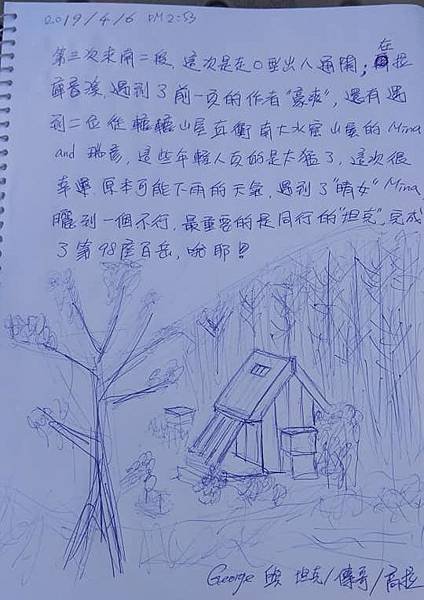 2019/4/6 PM2:53
第三次來南二段，這次是走O型出入通關，在拉
庫音溪，遇到了前一頁的作者"豪爽"，還有遇
到二位從轆轆山屋直衝南大水窟山屋的Mina
and 瑞彥，這些年輕人真的是太猛了，這次很
幸運，原本可能下雨的天氣，遇到了"晴女"Mina，
曬到一個不行，最重要的是同行的"坦克"，完成
了第98座百岳，呦耶!!
George 與 坦克/傳哥/高拉